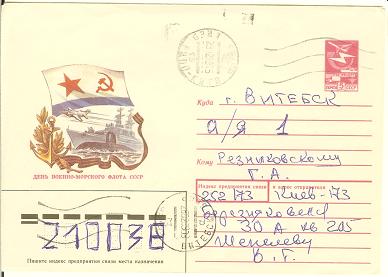 ПОЧТА СССР
Куда г. ВИТЕБСК
а/я 1
Кому Резниковскому
Г. А.
ДЕНЬ ВОЕННО-МОРСКОГО ФЛОТА СССР
Индекс предприятия связи и адрес отправителя
252173 Киев-73
30 А кв 205
В. Г.
210038
Пишите индекс предприятия связи места назначения